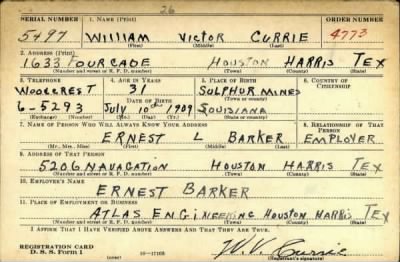 26
SERIAL NUMBER 1. NAME (Print) ORDER NUMBER
5497 WILLIAM VICTOR CURRIE 4773
(First) (Middle) (Last)
2. ADDRESS (Print)
1633 FOURCADE HOUSTON HARRIS TEX
(Number and street or R. F. D. number) (Town) (County) (State)
3. TELEPHONE 4. AGE IN YEARS 5. PLACE OF BIRTH 6. COUNTRY OF CITIZENSHIP
WOODCREST 31 SULPHUR MINES
DATE OF BIRTH (Town or county)
6-5293 JULY 10th 1909 LOUISIANA
(Exchange) (Number) (Mo.) (Day) (Yr.) (State or country)
7. NAME OF PERSON WHO WILL ALWAYS KNOW YOUR ADDRESS 8. RELATIONSHIP OF THAT PERSON
ERNEST L BARKER EMPLOYER
(Mr., Mrs., Miss) (First) (Middle) (Last)
9. ADDRESS OF THAT PERSON
5206 NAVAGATION HOUSTON HARRIS TEX
(Number and street or R. F. D. number) (Town) (County) (State)
10. EMPLOYER'S NAME
ERNEST BARKER
11. PLACE OF EMPLOYMENT OR BUSINESS
ATLAS ENGINEERING HOUSTON HARRIS TEX
(Number and street or R. F. D. number) (Town) (County) (State)
I AFFIRM THAT I HAVE VERIFIED ABOVE ANSWERS AND THAT THEY ARE TRUE.
REGISTRATION CARD
D. S. S. Form 1 W. V. Currie
(Registrant's signature)